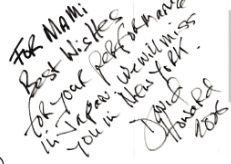 FOR MAMi
Best Wishes
for your performance
in Japan. We will miss
you in New York.
David
Howard
2006